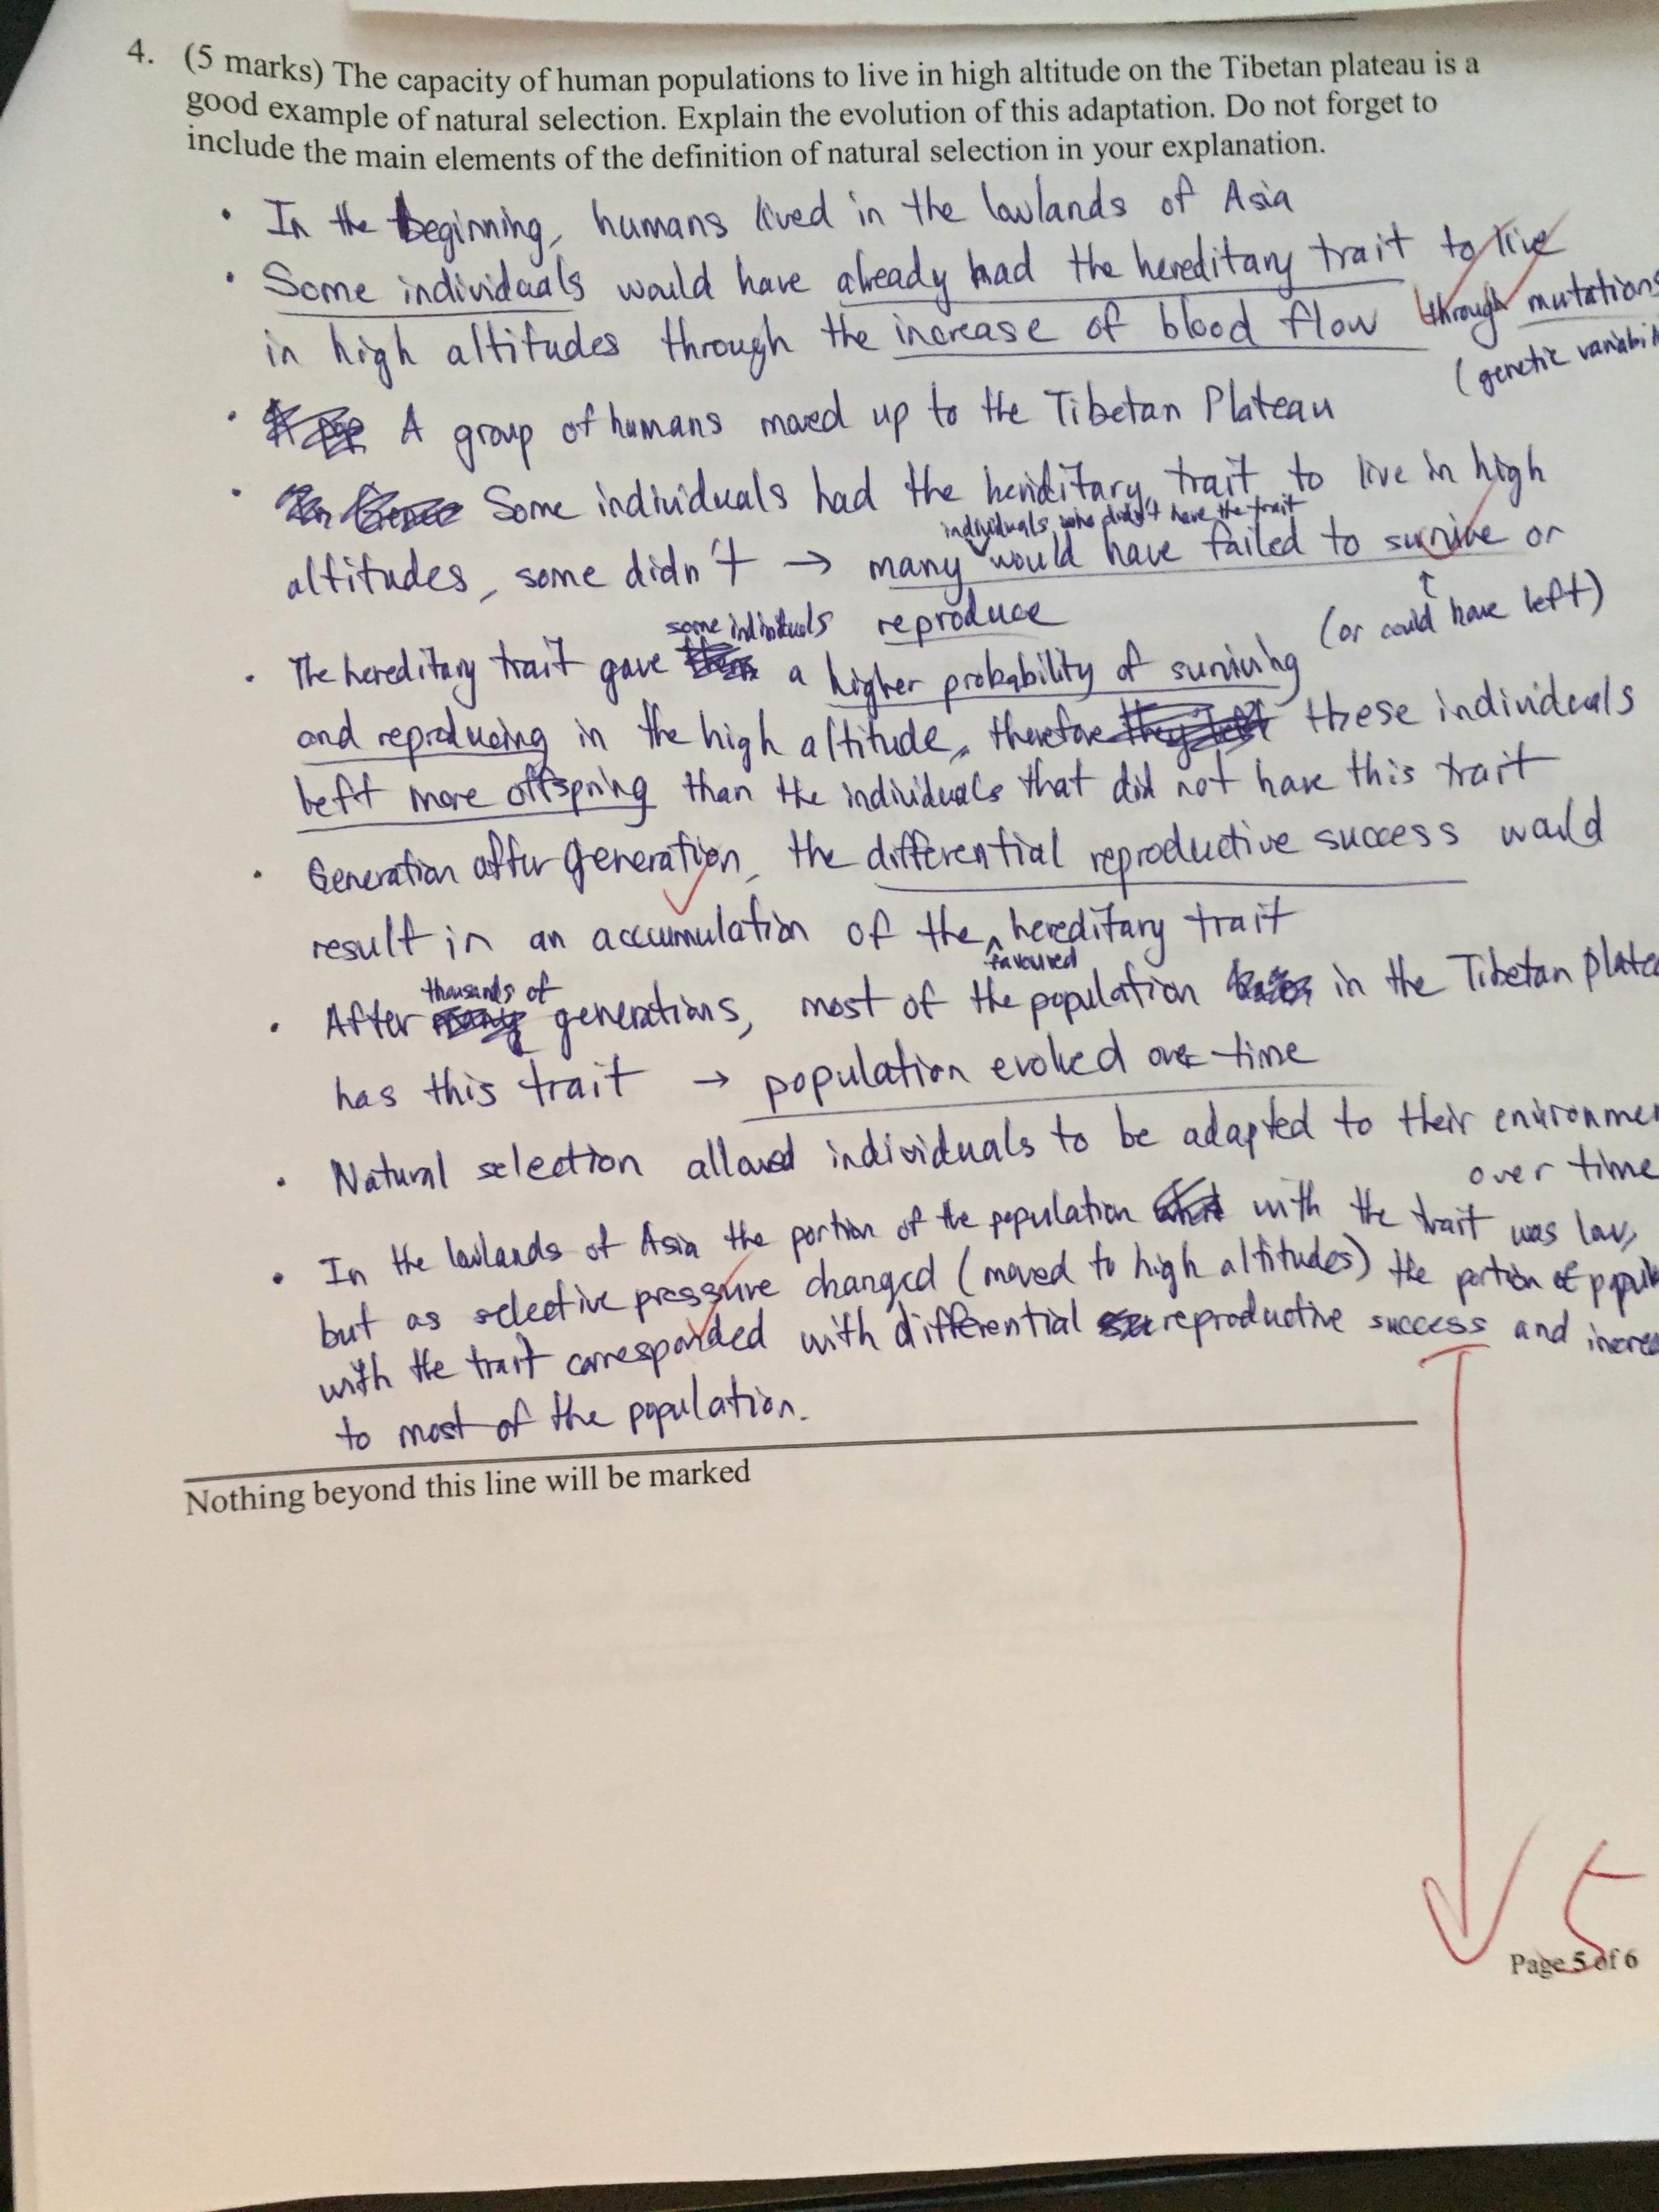 4. (5 marks) The capacity of human populations to live in high altitude on the Tibetan plateau is a
good example of natural selection. Explain the evolution of this adaptation. Do not forget to
include the main elements of the definition of natural selection in your explanation.
• In the beginning, humans lived in the lowlands of Asia
• Some individuals would have already had the hereditary trait to live
in high altitudes through the increase of blood flow through mutations
(genetic variabil
• A group of humans moved up to the Tibetan Plateau
• Some individuals had the heriditary trait to live in high
individuals who didn't have the trait
altitudes, some didn't → many would have failed to survive or
reproduce
(or could have left)
some individuals
• The hereditary trait gave a higher probability of surviving
and reproducing in the high altitude, therefore these individuals
left more offspring than the individuals that did not have this trait
• Generation after generation, the differential reproductive success would
result in an accumulation of the hereditary trait
favoured
thousands of
• After generations, most of the population in the Tibetan Platea
has this trait → population evolved over time
• Natural selection allowed individuals to be adapted to their environmen
over time
• In the lowlands of Asia the portion of the population with the trait was low,
but as selective pressure changed (moved to high altitudes) the portion of popula
with the trait corresponded with differential reproductive success and increa
to most of the population.
Nothing beyond this line will be marked
5
Page 5 of 6